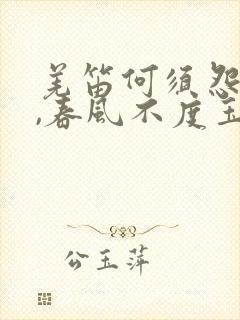 羌笛何须怨
,春风不度玉
公玉萍